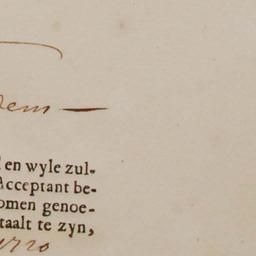 dem —
en wyle zul-
Acceptant be-
omen genoe-
taalt te zyn,
1720